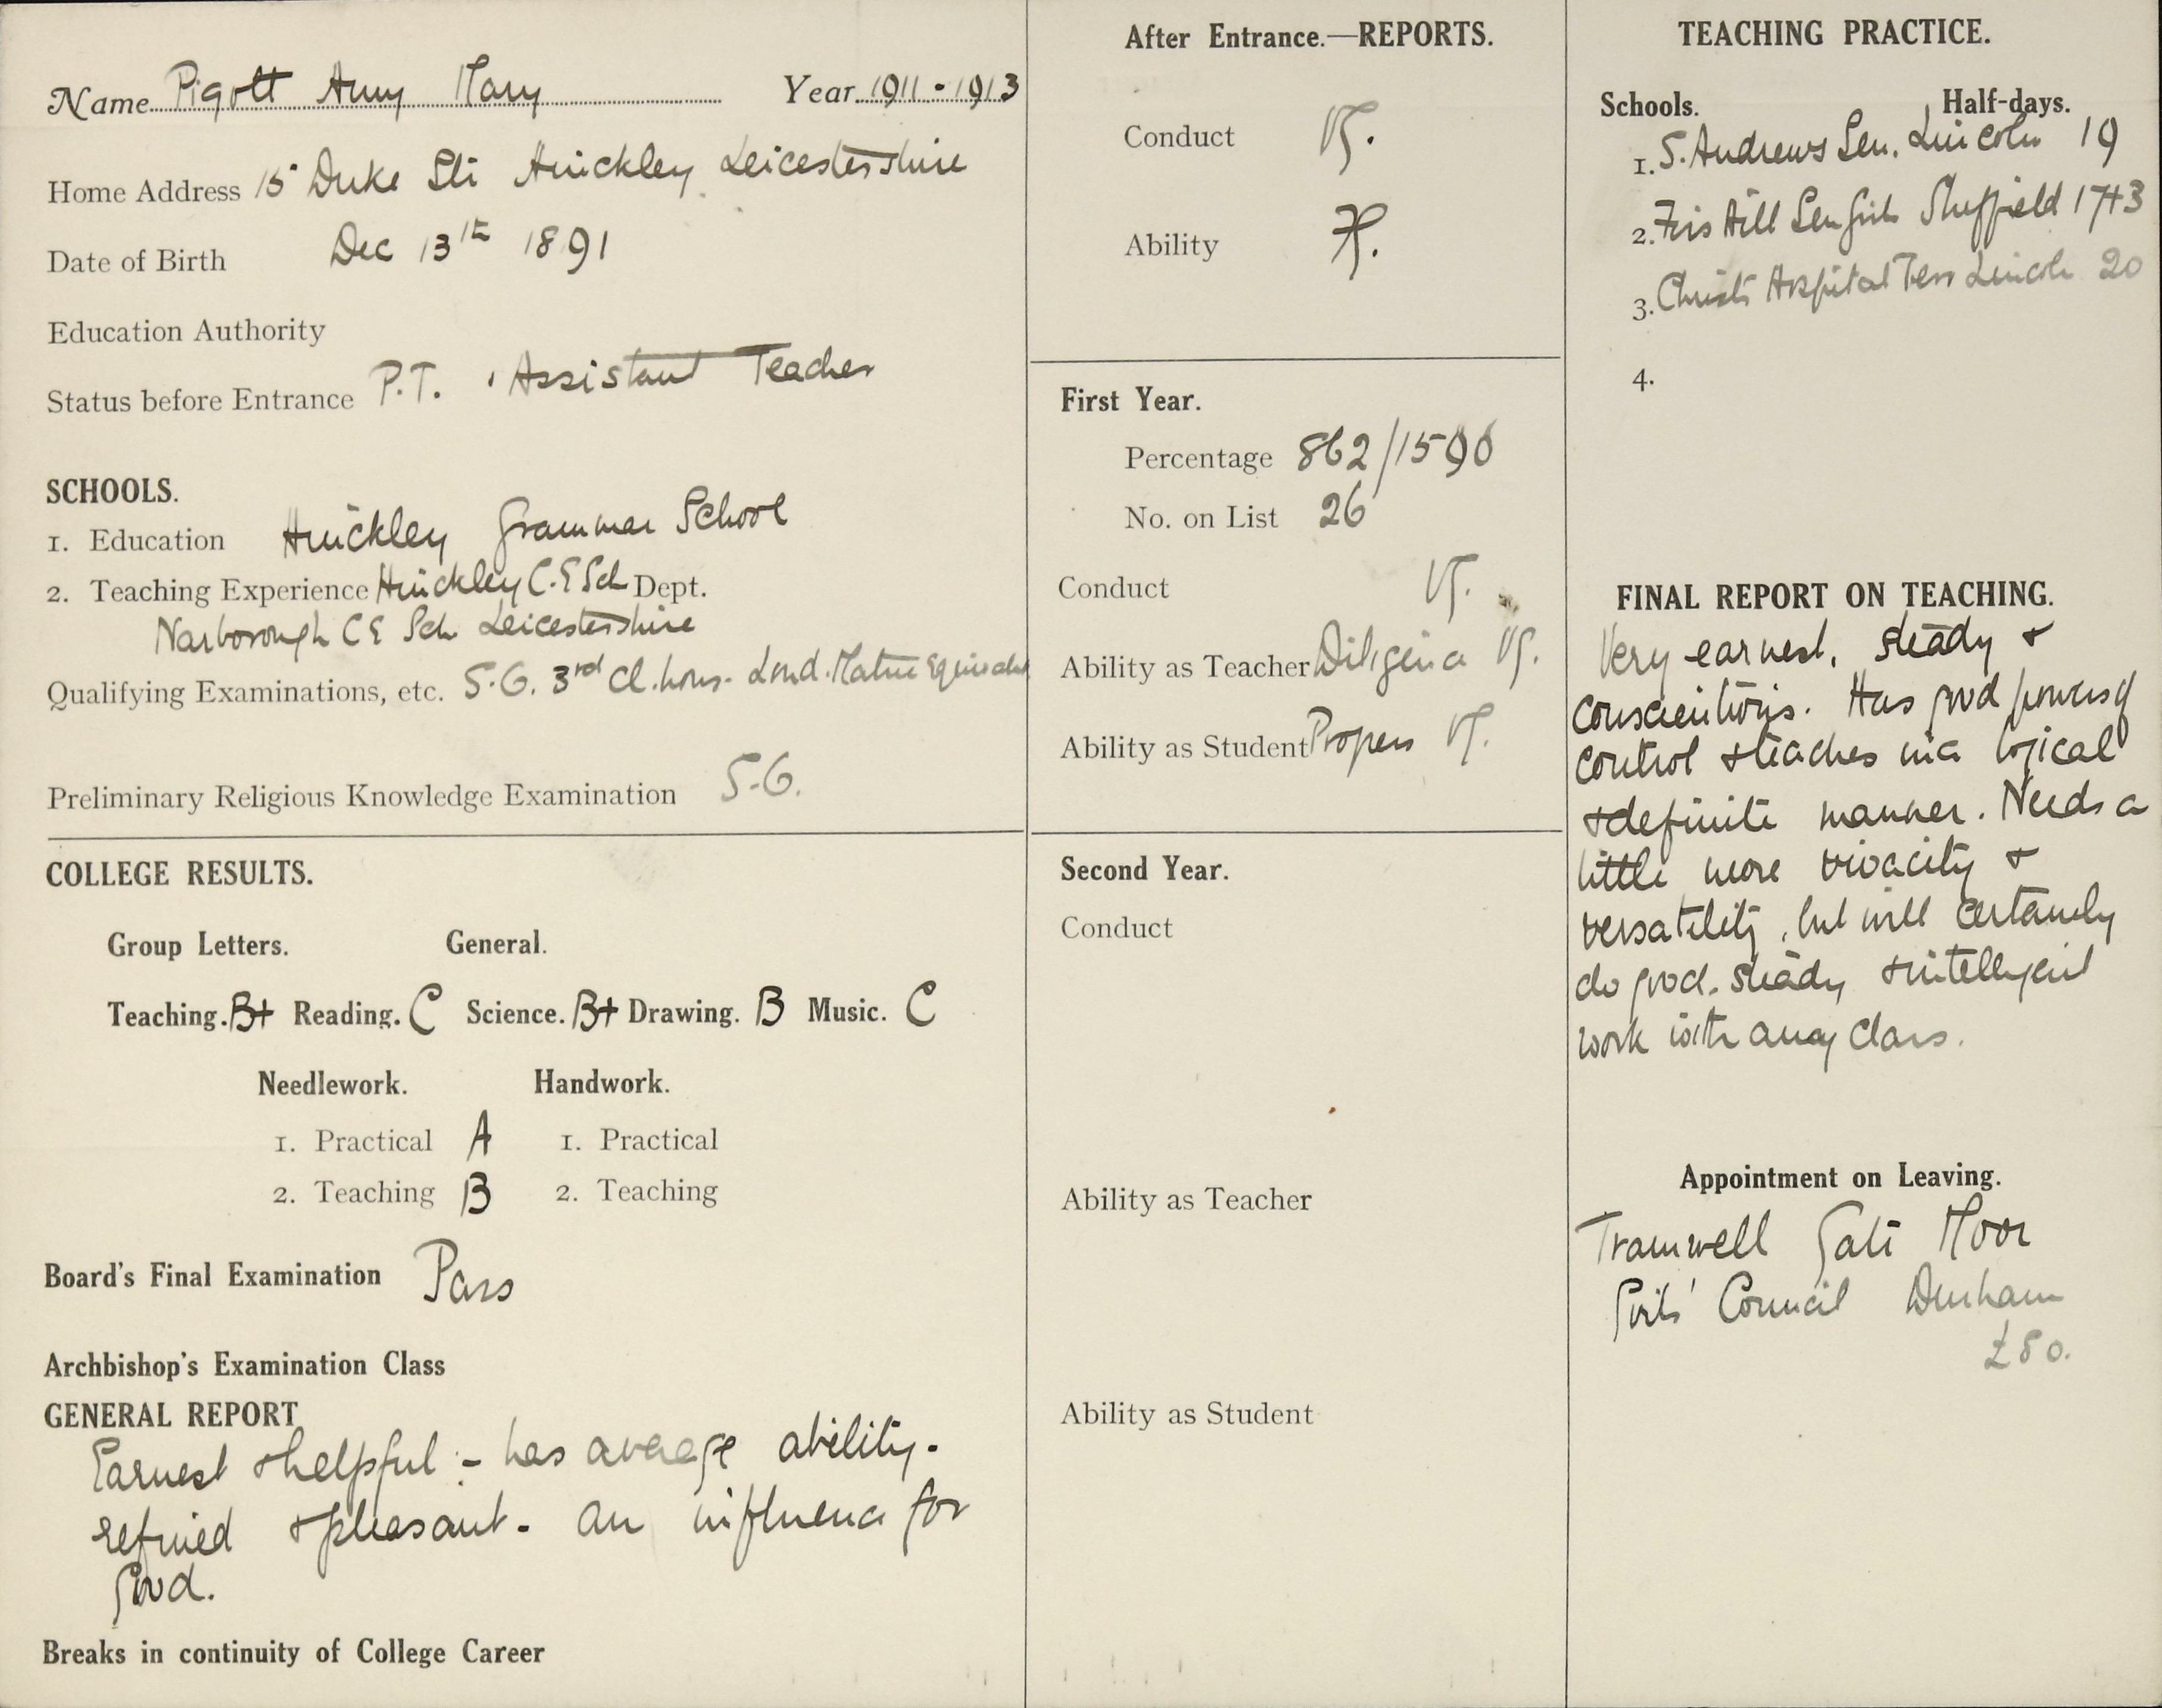 Name Pigott Amy Mary Year 1911 - 1913
Home Address 15 Duke St: Hinckley Leicestershire
Date of Birth Dec 13th 1891
Education Authority
Status before Entrance P.T. Assistant Teacher
SCHOOLS.
1. Education Hinckley Grammar School
2. Teaching Experience Hinckley C.E Sch Dept.
Narborough C E Sch Leicestershire
Qualifying Examinations, etc. S.G. 3rd Cl. hons. Lond. Matric Equivalent
Preliminary Religious Knowledge Examination S-G.
COLLEGE RESULTS.
Group Letters. General.
Teaching. B+ Reading. C Science. B+ Drawing. B Music. C
Needlework. Handwork.
1. Practical A 1. Practical
2. Teaching B 2. Teaching
Board's Final Examination Pass
Archbishop's Examination Class
GENERAL REPORT
Earnest & helpful :- has average ability.
refined & pleasant. An influence for
Good.
Breaks in continuity of College Career
After Entrance.—REPORTS.
Conduct VG.
Ability F.
First Year.
Percentage 862/1590
No. on List 26
Conduct VG.
Ability as Teacher Diligence VG.
Ability as Student Progress VG.
Second Year.
Conduct
Ability as Teacher
Ability as Student
TEACHING PRACTICE.
Schools. Half-days.
1. S. Andrews Sen. Lincoln 19
2. Firs Hill Sen Girls Sheffield 17+3
3. Christ's Hospital Terr Lincoln 20
4.
FINAL REPORT ON TEACHING.
Very earnest, steady &
conscientious. Has good powers of
control & teaches in a logical
& definite manner. Needs a
little more vivacity &
versatility, but will certainly
do good, steady & intelligent
work with any class.
Appointment on Leaving.
Tramwell Gate Moor
Girls' Council Durham
£80.